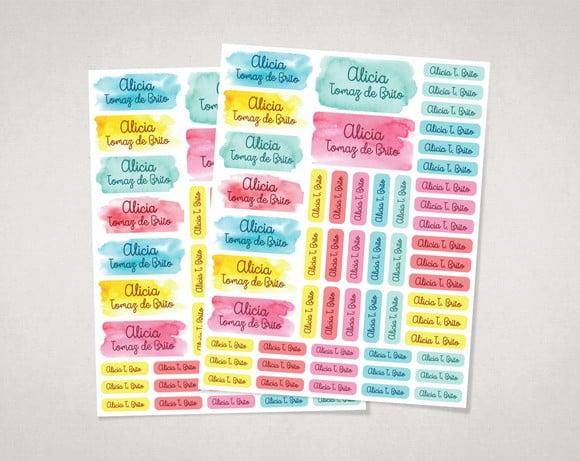 Alicia
Tomaz de Brito
Alicia
Tomaz de Brito
Alicia
Tomaz de Brito
Alicia
Tomaz de Brito
Alicia
Tomaz de Brito
Alicia
Tomaz de Brito
Alicia
Tomaz de Brito
Alicia T. Brito
Alicia T. Brito
Alicia T. Brito
Alicia T. Brito Alicia T. Brito
Alicia T. Brito Alicia T. Brito
Alicia T. Brito Alicia T. Brito
Alicia
Tomaz de Brito
Alicia
Tomaz de Brito
Alicia
Tomaz de Brito
Alicia
Tomaz de Brito
Alicia
Tomaz de Brito
Alicia
Tomaz de Brito
Alicia
Tomaz de Brito
Alicia
Tomaz de Brito
Alicia
Tomaz de Brito
Alicia T. Brito
Alicia T. Brito
Alicia T. Brito
Alicia T. Brito
Alicia T. Brito
Alicia T. Brito
Alicia T. Brito
Alicia T. Brito
Alicia T. Brito
Alicia T. Brito
Alicia T. Brito
Alicia T. Brito
Alicia T. Brito
Alicia T. Brito
Alicia T. Brito
Alicia T. Brito
Alicia T. Brito
Alicia T. Brito
Alicia T. Brito
Alicia T. Brito
Alicia T. Brito
Alicia T. Brito
Alicia T. Brito
Alicia T. Brito
Alicia T. Brito
Alicia T. Brito
Alicia T. Brito
Alicia T. Brito
Alicia T. Brito
Alicia T. Brito
Alicia T. Brito Alicia T. Brito Alicia T. Brito Alicia T. Brito Alicia T. Brito
Alicia T. Brito Alicia T. Brito Alicia T. Brito Alicia T. Brito Alicia T. Brito
Alicia T. Brito Alicia T. Brito Alicia T. Brito Alicia T. Brito Alicia T. Brito